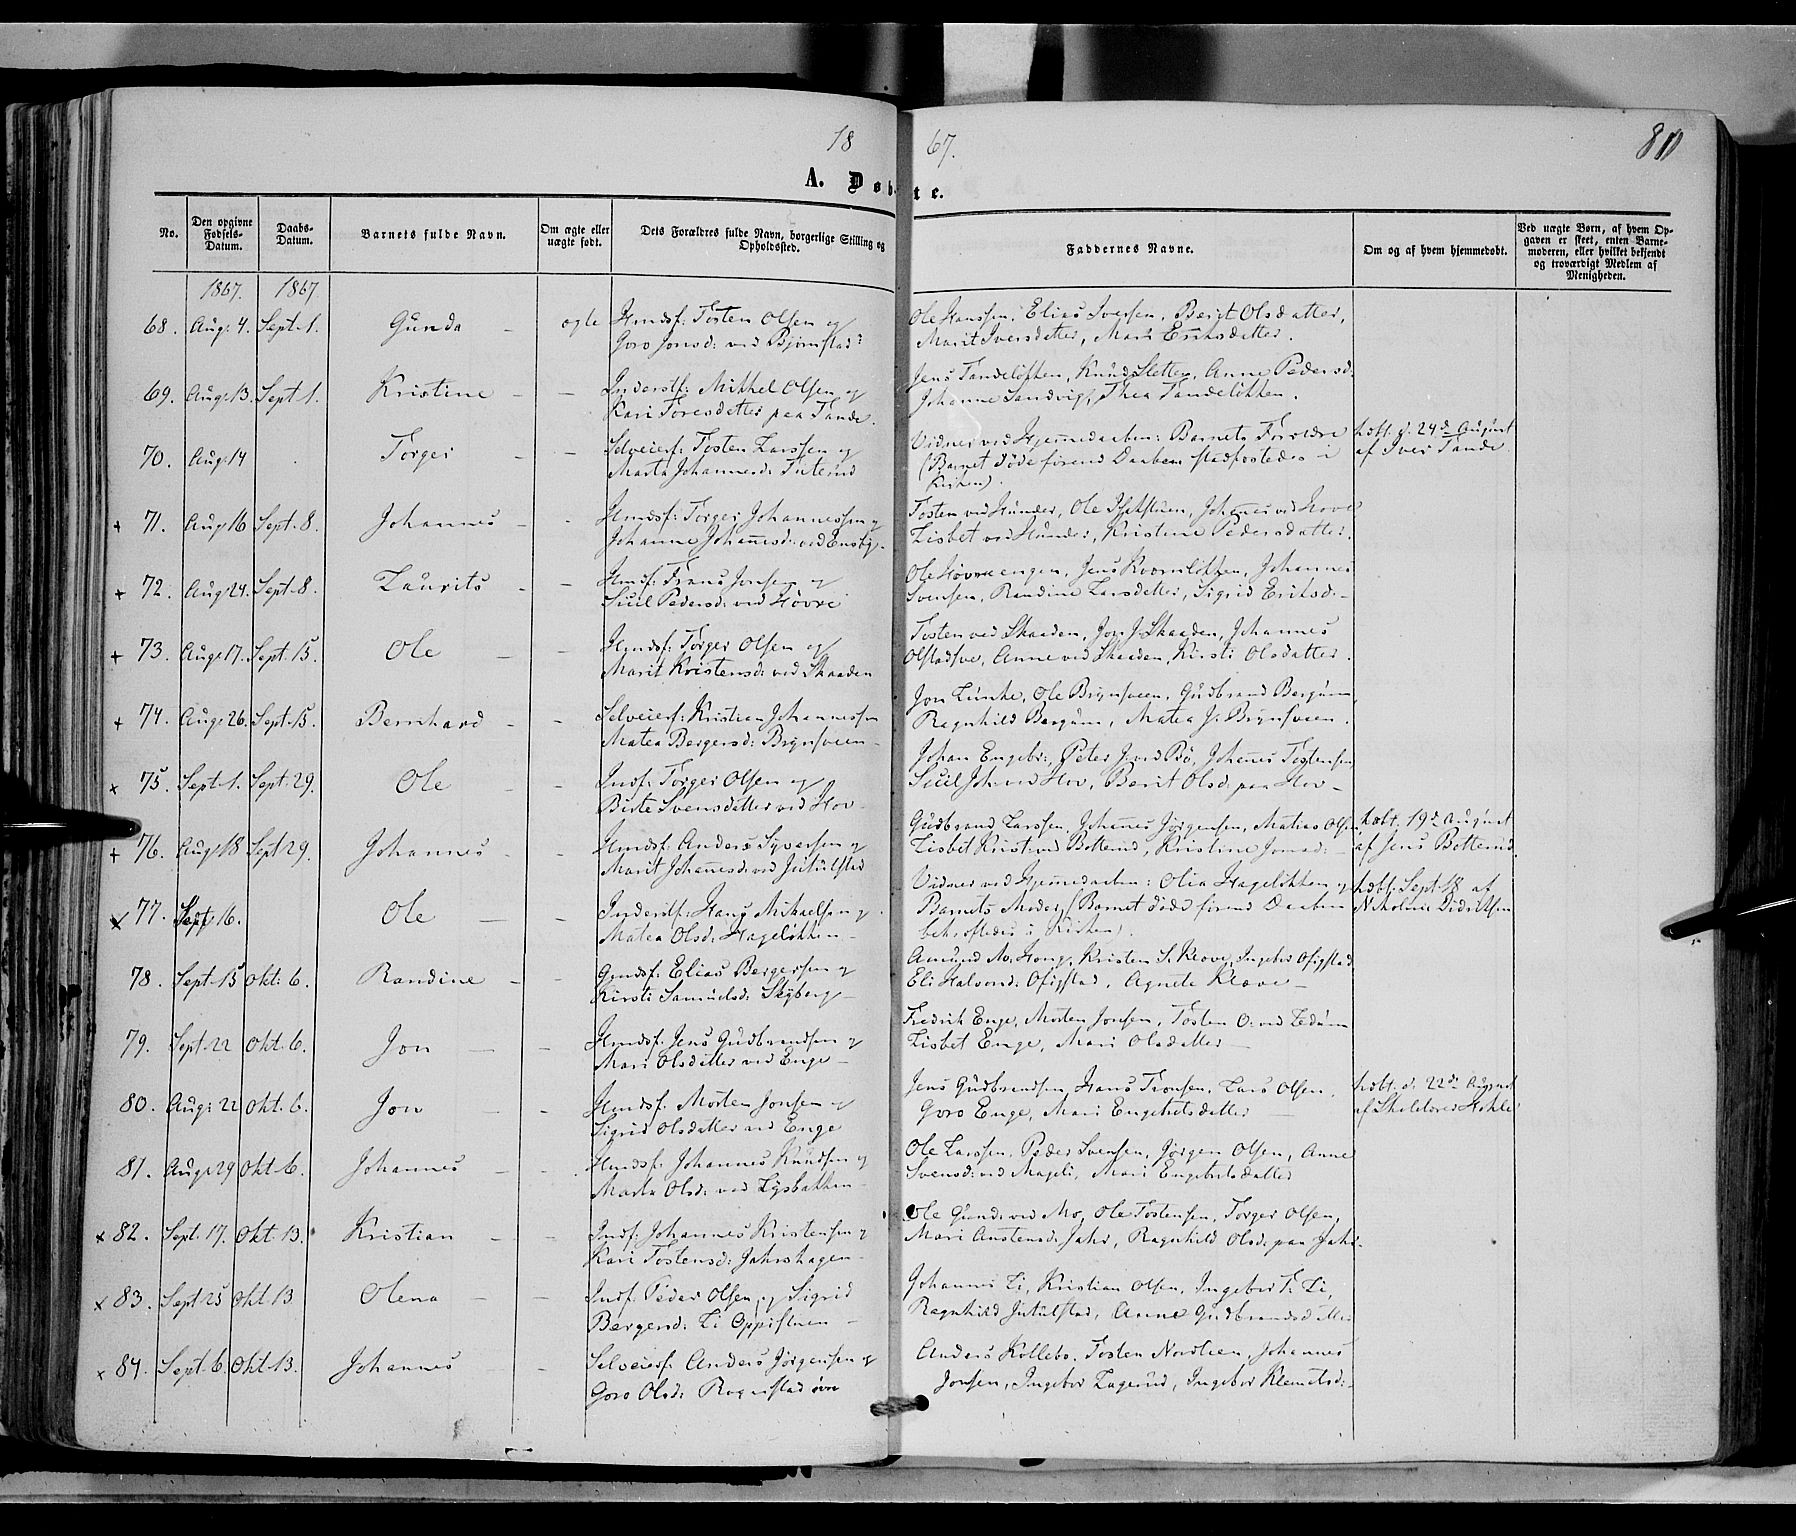 18 67.
80
A. Døbte.
No.
Den opgivne Fødsels-Datum.
Daabs-Datum.
Barnets fulde Navn.
Om ægte eller uægte født.
Dets Forældres fulde Navn, borgerlige Stilling og Opholdssted.
Faddernes Navne.
Om og af hvem hjemmedøbt.
Ved uægte Børn, af hvem Opgaven er skeet, enten Barnemoderen, eller hvilket bekjendt og troværdigt Medlem af Menigheden.
1867. 1867
68. Aug: 4. Sept. 1. Gunda - ægte Hmdsf: Tosten Olsen og
Goro Jonsd: ved Bjørnstad
Ole Hanssen, Elias Iversen, Berit Olsdatter,
Marit Iversdatter, Mari Eriksdatter.
69. Aug: 13. Sept. 1. Kristine - - Inderstf: Mikkel Olsen og
Kari Toresdatter paa Tande.
Jens Tandeløkken, Knud Sletten, Anne Pedersd:
Johanne Sandvig, Thea Tandeløkken.
70. Aug: 14 Torger - - Selveierf: Tosten Larssen og
Marte Johannesd:
Vidner ved Hjemmedaaben: Barnets Forældre
(Barnet døde førend Daaben stadfæstedes i
Kirken).
hdbt. d. 24de August
af Iver Tande
+ 71. Aug 16 Sept. 8. Johannes - - Hmdsf: Torger Johannessen og
Johanne Johanesd: ved Ensby.
Tosten ved Hunder, Ole, Johanes ved Hove
Lisbet ved Hunder, Kristine Pedersdatter.
+ 72. Aug: 24. Sept. 8. Laurits - - Hmsf: Frans Jonsen og
Siril Pedersd: ved Hovre
Ole Hovreengen, Jens Kvernløkken, Johannes
Svensen, Randine Larsdatter, Sigrid Eriksd: -
+ 73. Aug: 17. Sept. 15. Ole - - Hmdsf: Torger Olsen og
Marit Kristensd: ved Skaaden
Tosten ved Skaaden, Jon J. Skaaden, Johannes
Olstadsve, Anne ved Skaaden, Kirsti Olsdatter.
+ 74. Aug: 26. Sept. 15. Bernhard - - Selveierf: Kristian Johannessen
Matea Bergersd: Brynsveen -
Jon Lunke, Ole Brynsveen, Gudbrand Bergum
Ragnhild Bergum, Matea J. Brynsveen.
x 75. Sept. 1. Sept. 29. Ole - - Indf: Torger Olsen og
Birte Svensdatter ved Hov -
Johan Engebr:, Peter J. ved Bø, Johanes Tostensen
Siril Joh: ved Hov, Berit Olsd: paa Hov -
+ 76. Aug: 18 Sept 29. Johannes - - Hmdsf: Anders Syversen og
Marit Johanesd: ved Jutulstad
Gudbrand Larssen, Johanes Jørgensen, Matias Olsen
Lisbet Krist: ved Botterud, Kristine Jonsd: -
hdbt. 19de August
af Jens Botterud
x 77. Sept 16. Ole - - Inderstf: Hans Mikaelsen og
Matea Olsd: Hageløkken -
Vidner ved Hjemmedaaben: Olia Hageløkken og
Barnets Moder, (Barnet døde førend Daaben
bekræftedes i Kirken).
hdbt. Sept. 18 af
Nikoline Didriksen
78. Sept. 15 Okt: 6. Randine - - Gmdsf: Elias Bergersen og
Kirsti Samuelsd: Skyberg -
Amund M. Haug, Kristen S. Klove, Ingebor Ofigstad
Eli Halvorsd: Ofigstad, Agnete Klove -
79. Sept 22 Okt. 6. Jon - - Hmdsf: Jens Gudbrandsen og
Mari Olsdatter ved Enge -
Fredrik Enge, Morten Jonsen, Tosten O: ved Ledum
Lisbet Enge, Mari Olsdatter -
80. Aug: 22 Okt. 6. Jon - - Hmdsf: Morten Jonsen og
Sigrid Olsdatter ved Enge
Jens Gudbrandsen, Hans Tronsen, Lars Olsen,
Goro Enge, Mari Engebretsdatter -
hdbt. d. 22de August
af Skolelærer
81. Aug: 29 Okt. 6. Johannes - - Hmdsf: Johannes Knudsen og
Marte Olsd: ved Lysbakken -
Ole Larssen, Peder Svensen, Jørgen Olsen, Anne
Svensd: ved Mageli, Mari Engebretsdatter
x 82. Sept. 17. Okt. 13. Kristian - - Indf: Johannes Kristensen og
Kari Tostensd: Jahrshagen -
Ole Gund: ved Mo, Ole Tostensen, Torger Olsen,
Mari Austensd: Jahr, Ragnhild Olsd: paa Jahr -
x 83. Sept 25 Okt 13 Olena - - Indf: Peder Olsen og Sigrid
Bergersd: Li Oppistuen -
Johannes Li, Kristian Olsen, Ingebor T. Li,
Ragnhild Jutulstad, Anne Gudbrandsdatter
x 84. Sept. 6. Okt. 13. Johannes - Selveierf: Anders Jørgensen og
Goro Olsd: Rognstad øvre
Anders Kollebo, Tosten Nordlien, Johannes
Jonsen, Ingebor Lagerud, Ingebor Klemetsd: -